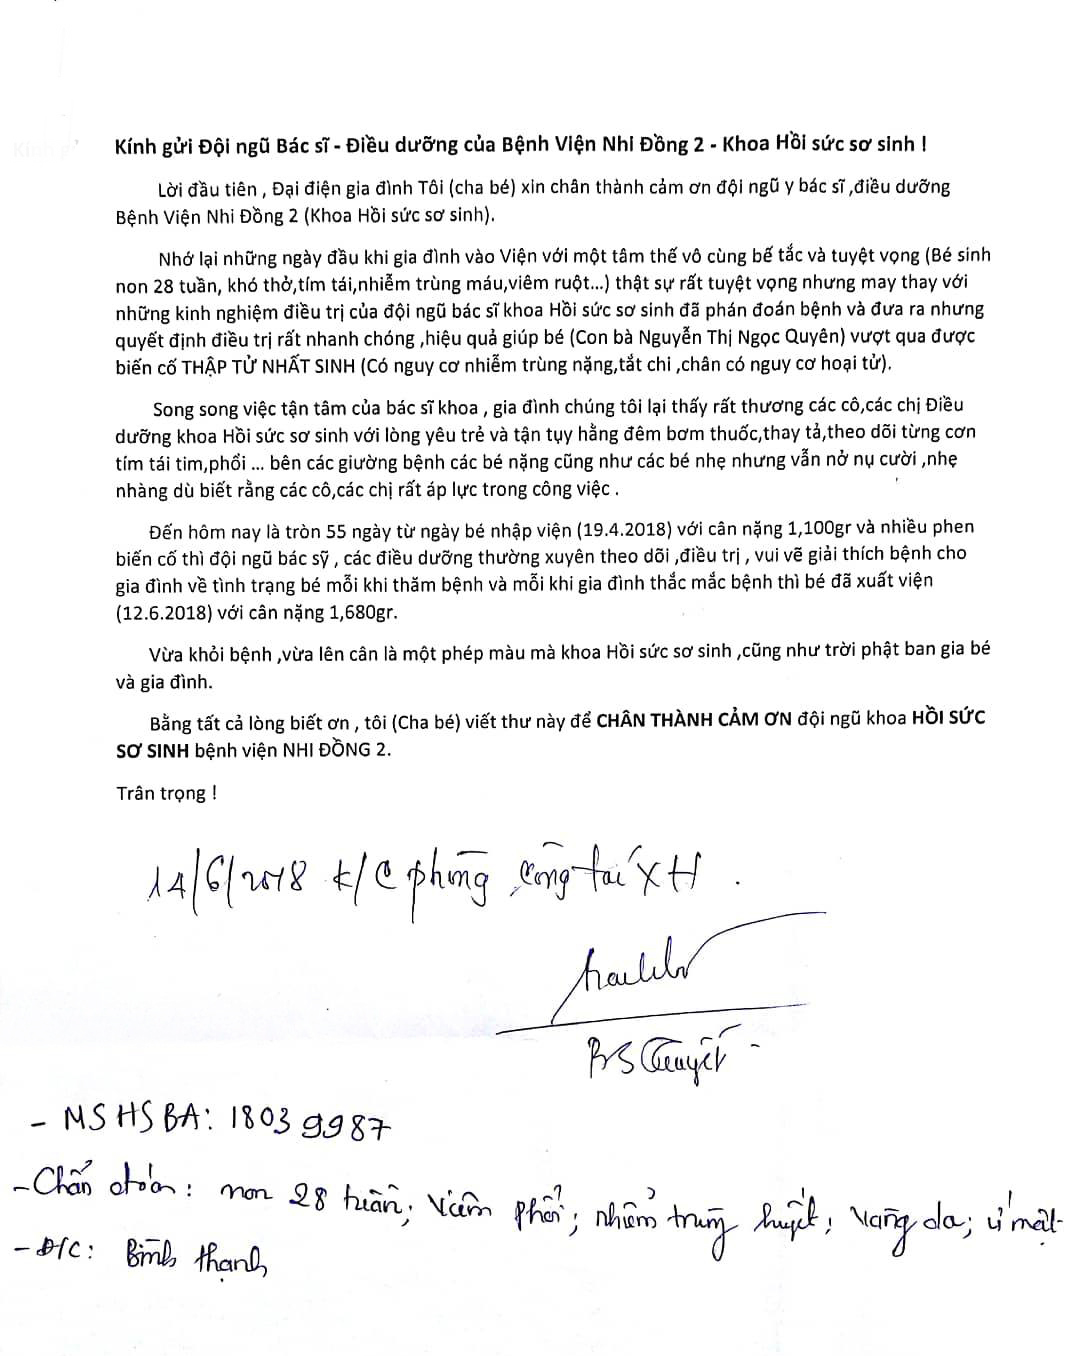 Kính gửi Đội ngũ Bác sĩ - Điều dưỡng của Bệnh Viện Nhi Đồng 2 - Khoa Hồi sức sơ sinh !
Lời đầu tiên , Đại điện gia đình Tôi (cha bé) xin chân thành cảm ơn đội ngũ y bác sĩ ,điều dưỡng
Bệnh Viện Nhi Đồng 2 (Khoa Hồi sức sơ sinh).
Nhớ lại những ngày đầu khi gia đình vào Viện với một tâm thế vô cùng bế tắc và tuyệt vọng (Bé sinh
non 28 tuần, khó thở,tím tái,nhiễm trùng máu,viêm ruột...) thật sự rất tuyệt vọng nhưng may thay với
những kinh nghiệm điều trị của đội ngũ bác sĩ khoa Hồi sức sơ sinh đã phán đoán bệnh và đưa ra nhưng
quyết định điều trị rất nhanh chóng ,hiệu quả giúp bé (Con bà Nguyễn Thị Ngọc Quyên) vượt qua được
biến cố THẬP TỬ NHẤT SINH (Có nguy cơ nhiễm trùng nặng,tắt chi ,chân có nguy cơ hoại tử).
Song song việc tận tâm của bác sĩ khoa , gia đình chúng tôi lại thấy rất thương các cô,các chị Điều
dưỡng khoa Hồi sức sơ sinh với lòng yêu trẻ và tận tụy hằng đêm bơm thuốc,thay tả,theo dõi từng cơn
tím tái tim,phổi ... bên các giường bệnh các bé nặng cũng như các bé nhẹ nhưng vẫn nở nụ cười ,nhẹ
nhàng dù biết rằng các cô,các chị rất áp lực trong công việc .
Đến hôm nay là tròn 55 ngày từ ngày bé nhập viện (19.4.2018) với cân nặng 1,100gr và nhiều phen
biến cố thì đội ngũ bác sỹ , các điều dưỡng thường xuyên theo dõi ,điều trị , vui vẽ giải thích bệnh cho
gia đình về tình trạng bé mỗi khi thăm bệnh và mỗi khi gia đình thắc mắc bệnh thì bé đã xuất viện
(12.6.2018) với cân nặng 1,680gr.
Vừa khỏi bệnh ,vừa lên cân là một phép màu mà khoa Hồi sức sơ sinh ,cũng như trời phật ban gia bé
và gia đình.
Bằng tất cả lòng biết ơn , tôi (Cha bé) viết thư này để CHÂN THÀNH CẢM ƠN đội ngũ khoa HỒI SỨC
SƠ SINH bệnh viện NHI ĐỒNG 2.
Trân trọng !
14/6/2018 K/C phòng công tác XH .
BS
- MSHSBA: 18039987
- Chẩn đoán: non 28 tuần; Viêm phổi; nhiễm trùng huyết; vàng da; ứ mật
- Đ/C: Bình Thạnh